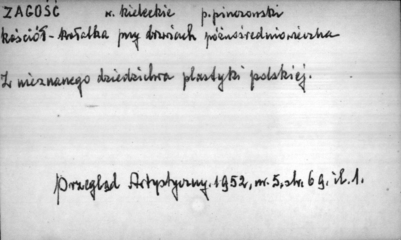 ZAGOŚĆ w. kieleckie p. pinczowski
kościół - kołatka przy drzwiach późnośredniowieczna
Z nieznanego dziedzictwa plastyki polskiej.
Przegląd Artystyczny. 1952, nr. 5, str. 69. il. 1.